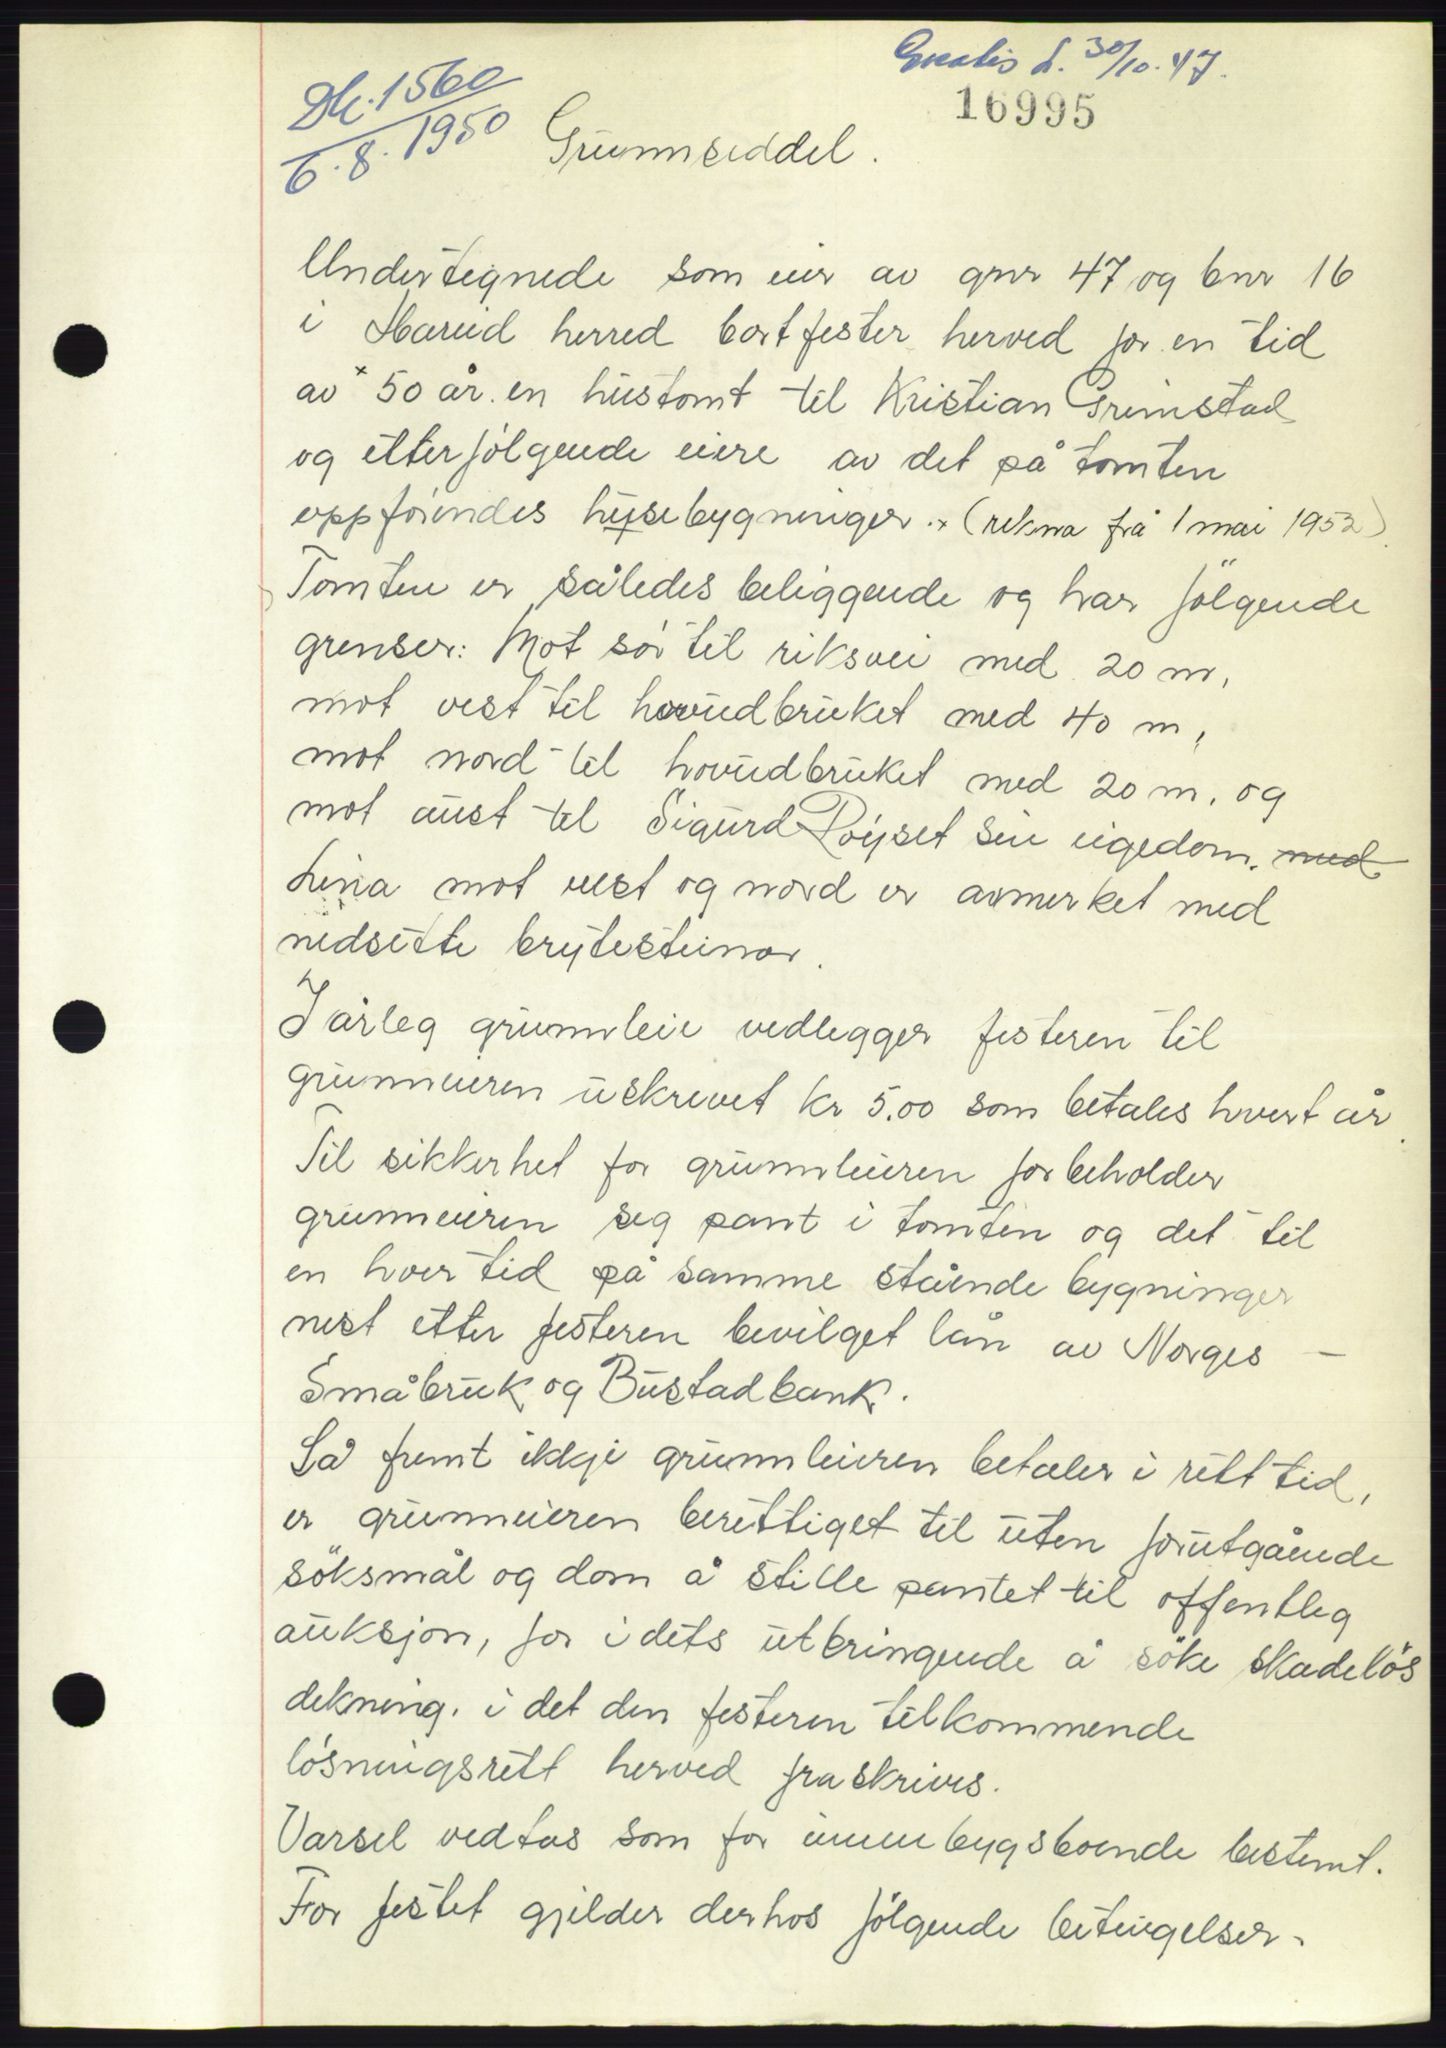 Gratis L. 30/10.47.
16995
Dk. 1560
6.8.1950
Grunnseddel.
Undertegnede som eier av gnr 47 og bnr 16
i Hareid herred bortfester herved for en tid
av x 50 år en hustomt til Kristian Grimstad
og etterfölgende eiere av det på tomten
oppförendes husebygninger. x (rekna frå 1 mai 1952)
Tomten er således beliggende og har fölgende
grenser: Mot sör til riksvei med 20 m,
mot vest til hovudbruket med 40 m,
mot nord til hovudbruket med 20 m, og
mot aust til Sigurd Röyset sin eigedom. med
Lina mot vest og nord er avmerket med
nedsette bytesteinar.
I årleg grunnleie vedlegger festeren til
grunneieren uskrevet kr 5.00 som betales hvert år.
Til sikkerhet for grunnleieren forbeholder
grunneieren seg pant i tomten og det til
en hver tid på samme stående bygninger
nest etter festeren bevilget lån av Norges –
Småbruk og Bustadbank.
Så fremt ikkje grunnleieren betaler i rett tid,
er grunneieren berettiget til uten forutgående
söksmål og dom å stille pantet til offentleg
auksjon, for i dets utbringende å söke skadelös
dekning. i det den festeren tilkommende
lösningsrett herved fraskrives.
Varsel vedtas som for innenbygsboende bestemt.
For festet gjelder derhos fölgende betingelser.